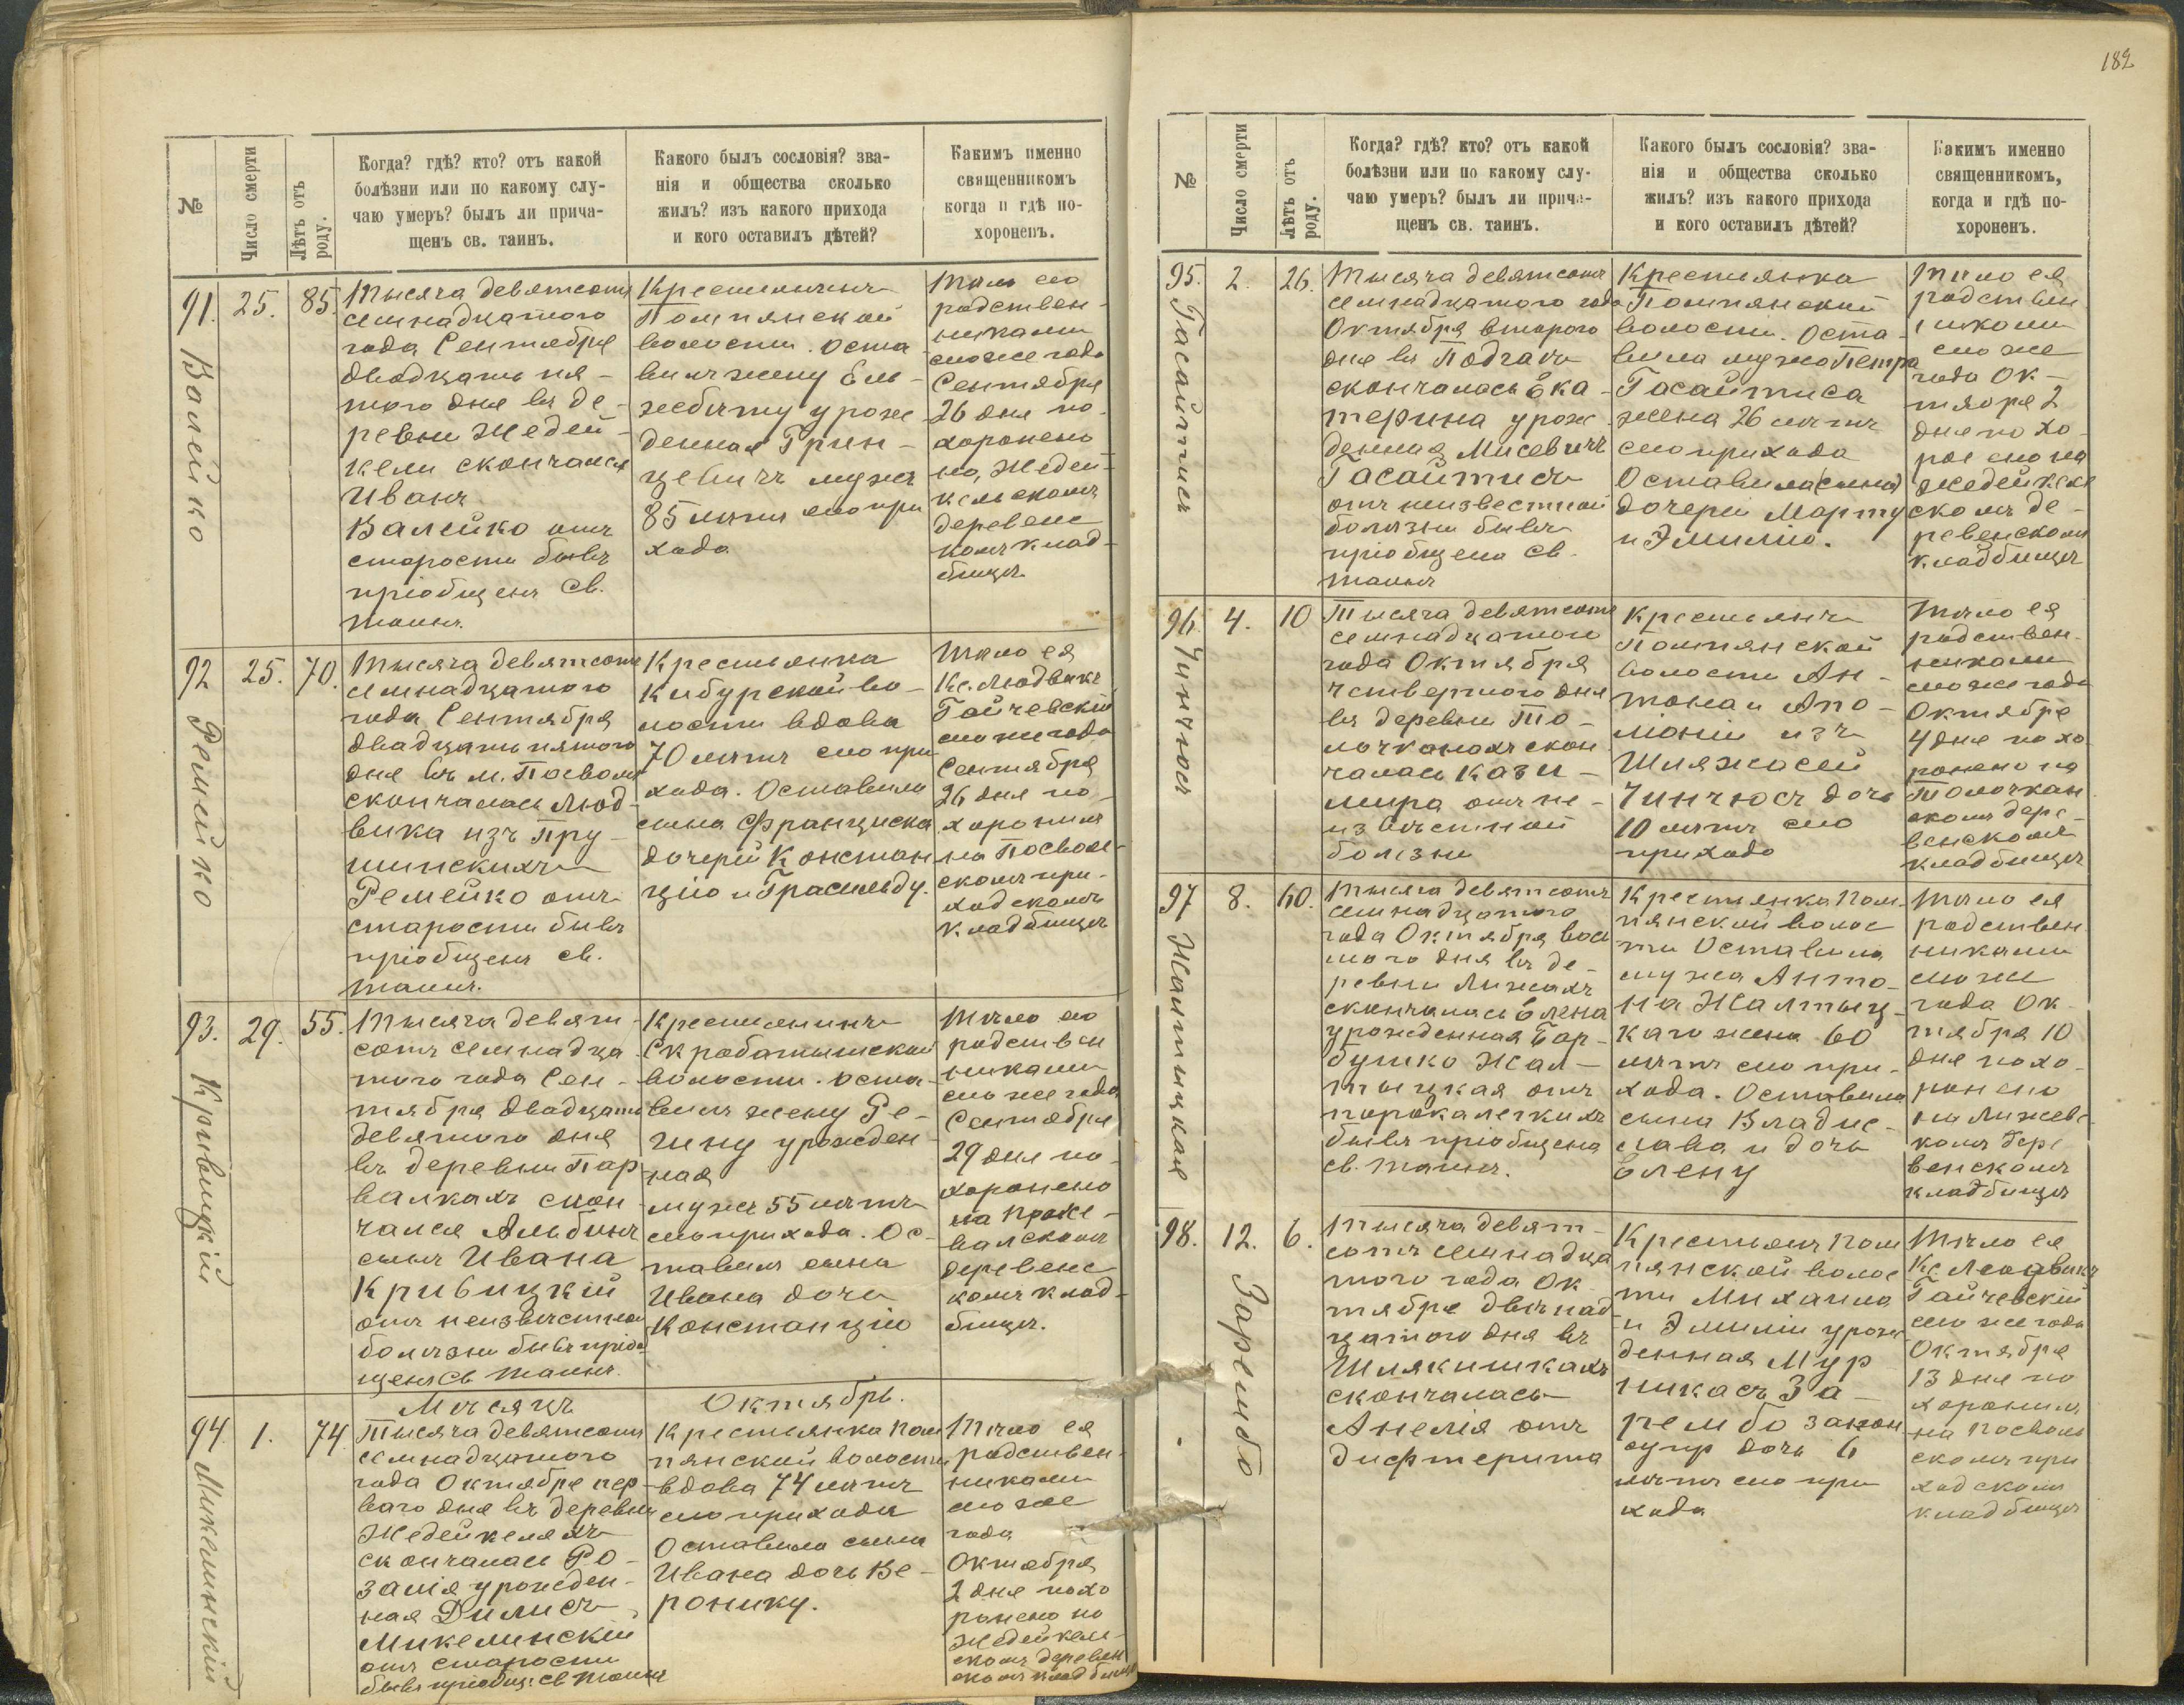 №
Число смерти
Лѣтъ отъ
роду.
Когда? гдѣ? кто? отъ какой
болѣзни или по какому слу-
чаю умеръ? былъ ли прича-
щенъ св. таинъ.
Какого былъ сословія? зва-
нія и общества сколько
жилъ? изъ какого прихода
и кого оставилъ дѣтей?
Какимъ именно
священникомъ
когда и гдѣ по-
хороненъ.
91.
Валейко
25.
85.
Тысяча девятсотъ
семнадцатого
года Сентября
двадцать пя-
того дня въ де-
ревни Жедей-
кели скончался
Иванъ
Валейко отъ
старости бывъ
пріобщенъ Св.
таинъ.
Крестьянинъ
Помпянской
волости. Оста
вилъ жену Ель-
жбету урож
денная Грин-
цевичъ мужъ
85 лѣтъ сего при
хода
Тѣло его
родствен-
никами
сего же года
Сентября
26 дня по-
хоронено
на Жедей-
кельскомъ
деревенс
комъ клад-
бищѣ
92
Ремейко
25.
70.
Тысяча девятсотъ
семнадцатого
года Сентября
двадцать пятого
дня въ м. Посволѣ
скончалась Люд-
вика изъ Пру-
шинскихъ
Ремейко отъ
старости бывъ
пріобщена св.
таинъ.
Крестьянка
Кибурской во-
лости вдова
70 лѣтъ сего при
хода. Оставила
сына Франциска
дочерей Констан
цію и Грасильду.
Тѣло ея
Кс. Людвикъ
Гайчевскій
сего же года
Сентября
26 дня по-
хоронилъ
на Посволь-
скомъ при-
ходскомъ
кладбищѣ
93.
Кривицкій
29.
55.
Тысяча девят-
сотъ семнадца
того года Сен-
тября двадцать
девятого дня
въ деревни Пар-
валкахъ скон
чался Альбинъ
сынъ Ивана
Кривицкій
отъ неизвѣстной
болѣзни бывъ пріоб
щенъ Св таинъ.
Крестьянинъ
Скробатышской
волости. Оста-
вилъ жену Ре-
гину урожден-
ная
мужъ 55 лѣтъ
сего прихода. Ос-
тавилъ сына
Ивана дочь
Констанцію
Тѣло его
родствен
никами
сего же года
Сентября
29 дня по-
хоронено
на
валскомъ
деревенс
комъ клад-
бищѣ.
Мѣсяцъ Октябрь.
94
Микелинскій
1.
74
Тысяча девятсотъ
семнадцатого
года Октября пер
ваго дня въ деревни
Жедейкеляхъ
скончалась Ро-
залія урожден-
ная Дилисъ
Микелинскій
отъ старости
бывъ пріобщ. Св таинъ
Крестьянка Пом
пянской волости
вдова 74 лѣтъ
сего прихода
Оставила сына
Ивана дочь Ве-
ронику.
Тѣло ея
родствен-
никами
сего же
года
Октября
2 дня похо
ронено на
Жедейкель-
скомъ деревен
скомъ кладбищѣ
182
№
Число смерти
Лѣтъ отъ
роду.
Когда? гдѣ? кто? отъ какой
болѣзни или по какому слу-
чаю умеръ? былъ ли прича-
щенъ св. таинъ.
Какого былъ сословія? зва-
нія и общества сколько
жилъ? изъ какого прихода
и кого оставилъ дѣтей?
Какимъ именно
священникомъ,
когда и гдѣ по-
хороненъ.
95.
Гасайтисъ
2.
26.
Тысяча девятсотъ
семнадцатого года
Октября второго
дня въ Подгаѣ
скончалась Ека-
терина урож
денная Мисевичъ
Гасайтисъ
отъ неизвестной
болѣзни бывъ
пріобщена Св.
таинъ
Крестьянка
Помпянской
волости. Оста-
вила мужа Петра
Гасайтиса
жена 26 лѣтъ
сего прихода
Оставила
дочери Марту
и Эмилію.
Тѣло ея
родствен
никами
сего же
года Ок-
тября 2
дня похо-
ронено на
Жедейкель
скомъ де-
ревенскомъ
кладбищѣ
96.
Чинчюсъ
4.
10
Тысяча девятсотъ
семнадцатого
года Октября
четвертого дня
въ деревни То-
лочканахъ скон
чалась Кази-
мира отъ не-
извѣстной
болезни
Крестьянъ
Помпянской
волости Ан-
тона и Апо-
лоніи изъ
Шляжасей
Чинчюсъ дочь
10 лѣтъ сего
прихода
Тѣло ея
родствен-
никами
сего же года
Октября
4 дня похо
ронено на
Толочкан
скомъ дере-
венскомъ
кладбищѣ
97
Жалтицкая
8.
60.
Тысяча девятсотъ
семнадцатого
года Октября вось
мого дня въ де-
ревни Лижахъ
скончалась Елена
урожденная Бар-
бушко Жал-
тыцкая отъ
порока легкихъ
бывъ пріобщена
св. таинъ.
Крестьянка Пом-
пянской волос
ти Оставила
мужа Анто-
на Жалтыц-
каго жена 60
лѣтъ сего при-
хода. Оставила
сына Владис-
лава и дочь
Елену
Тѣло ея
родствен
никами
сего же
года Ок-
тября 10
дня похо-
ронено
на Лижевс-
комъ дере
венскомъ
кладбищѣ
98.
Зарембо
12.
6.
Тысяча девят-
сотъ семнадца
того года Ок
тября двѣнад
цатого дня въ
Шлякишкахъ
скончалась
Анелія отъ
дифтерита
Крестьянъ Пом
пянской волос
ти Михаила
и Эмиліи урож
денная Мур
никасъ За-
рембо закон
супр дочь 6
лѣтъ сего при
хода
Тѣло ея
Кс Людвикъ
Гайчевскій
сего же года
Октября
13 дня по
хоронилъ
на Посволь
скомъ при
ходскомъ
кладбищѣ